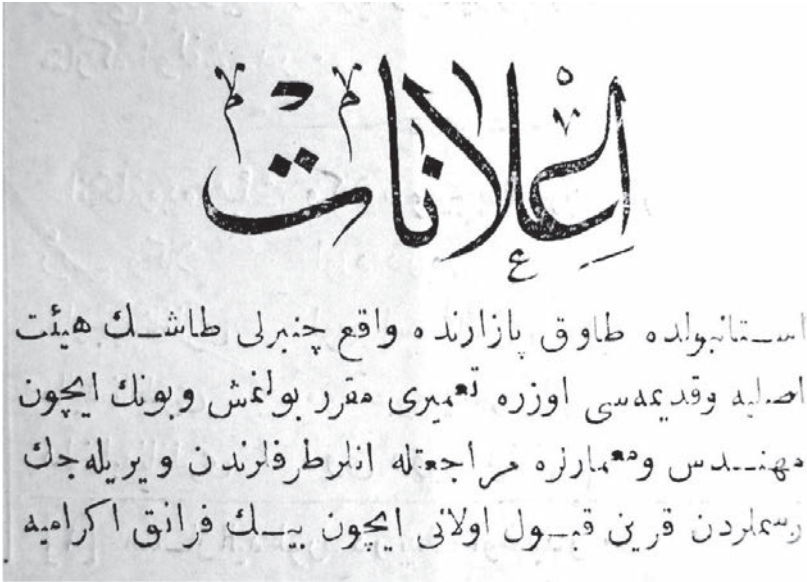 اعلانات
استانبولده طاوق پازارنده واقع چنبرلی طاشـك هيئت
اصليه وقديمه‌سی اوزره تعميری مقرر بولنمش وبونك ايچون
مهنـدس ومعمارلره مراجعتله انلر طرفلرندن ويريله‌جك
رسملردن قرين قبـول اولانی ايچون بيـك فرانق اكراميه